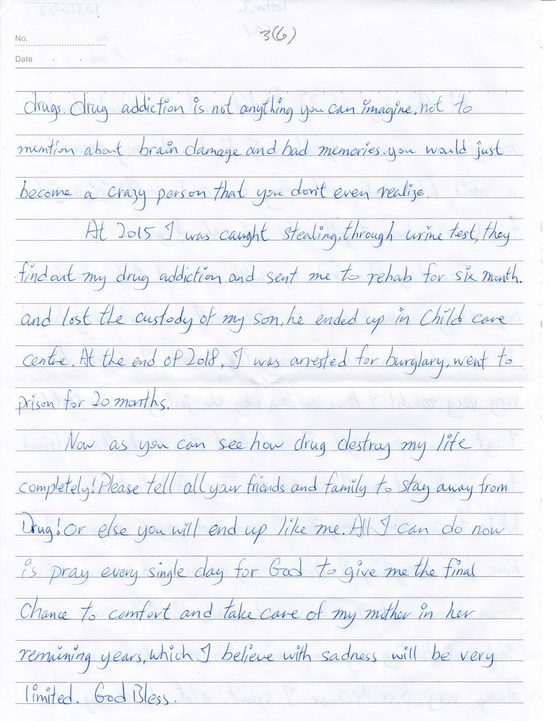 3(6)
No.
Date
drugs. drug addiction is not anything you can imagine, not to
mention about brain damage and bad memories. you would just
become a crazy person that you don't even realize.
At 2015 I was caught stealing, through urine test, they
find out my drug addiction and sent me to rehab for six month.
and lost the custody of my son, he ended up in Child care
centre. At the end of 2018, I was arrested for burglary, went to
prison for 20 months.
Now as you can see how drug destray my life
completely! Please tell all your friends and family to stay away from
Drug! Or else you will end up like me. All I can do now
is pray every single day for God to give me the final
Chance to comfort and take care of my mother in her
remaining years, which I believe with sadness will be very
limited. God Bless.